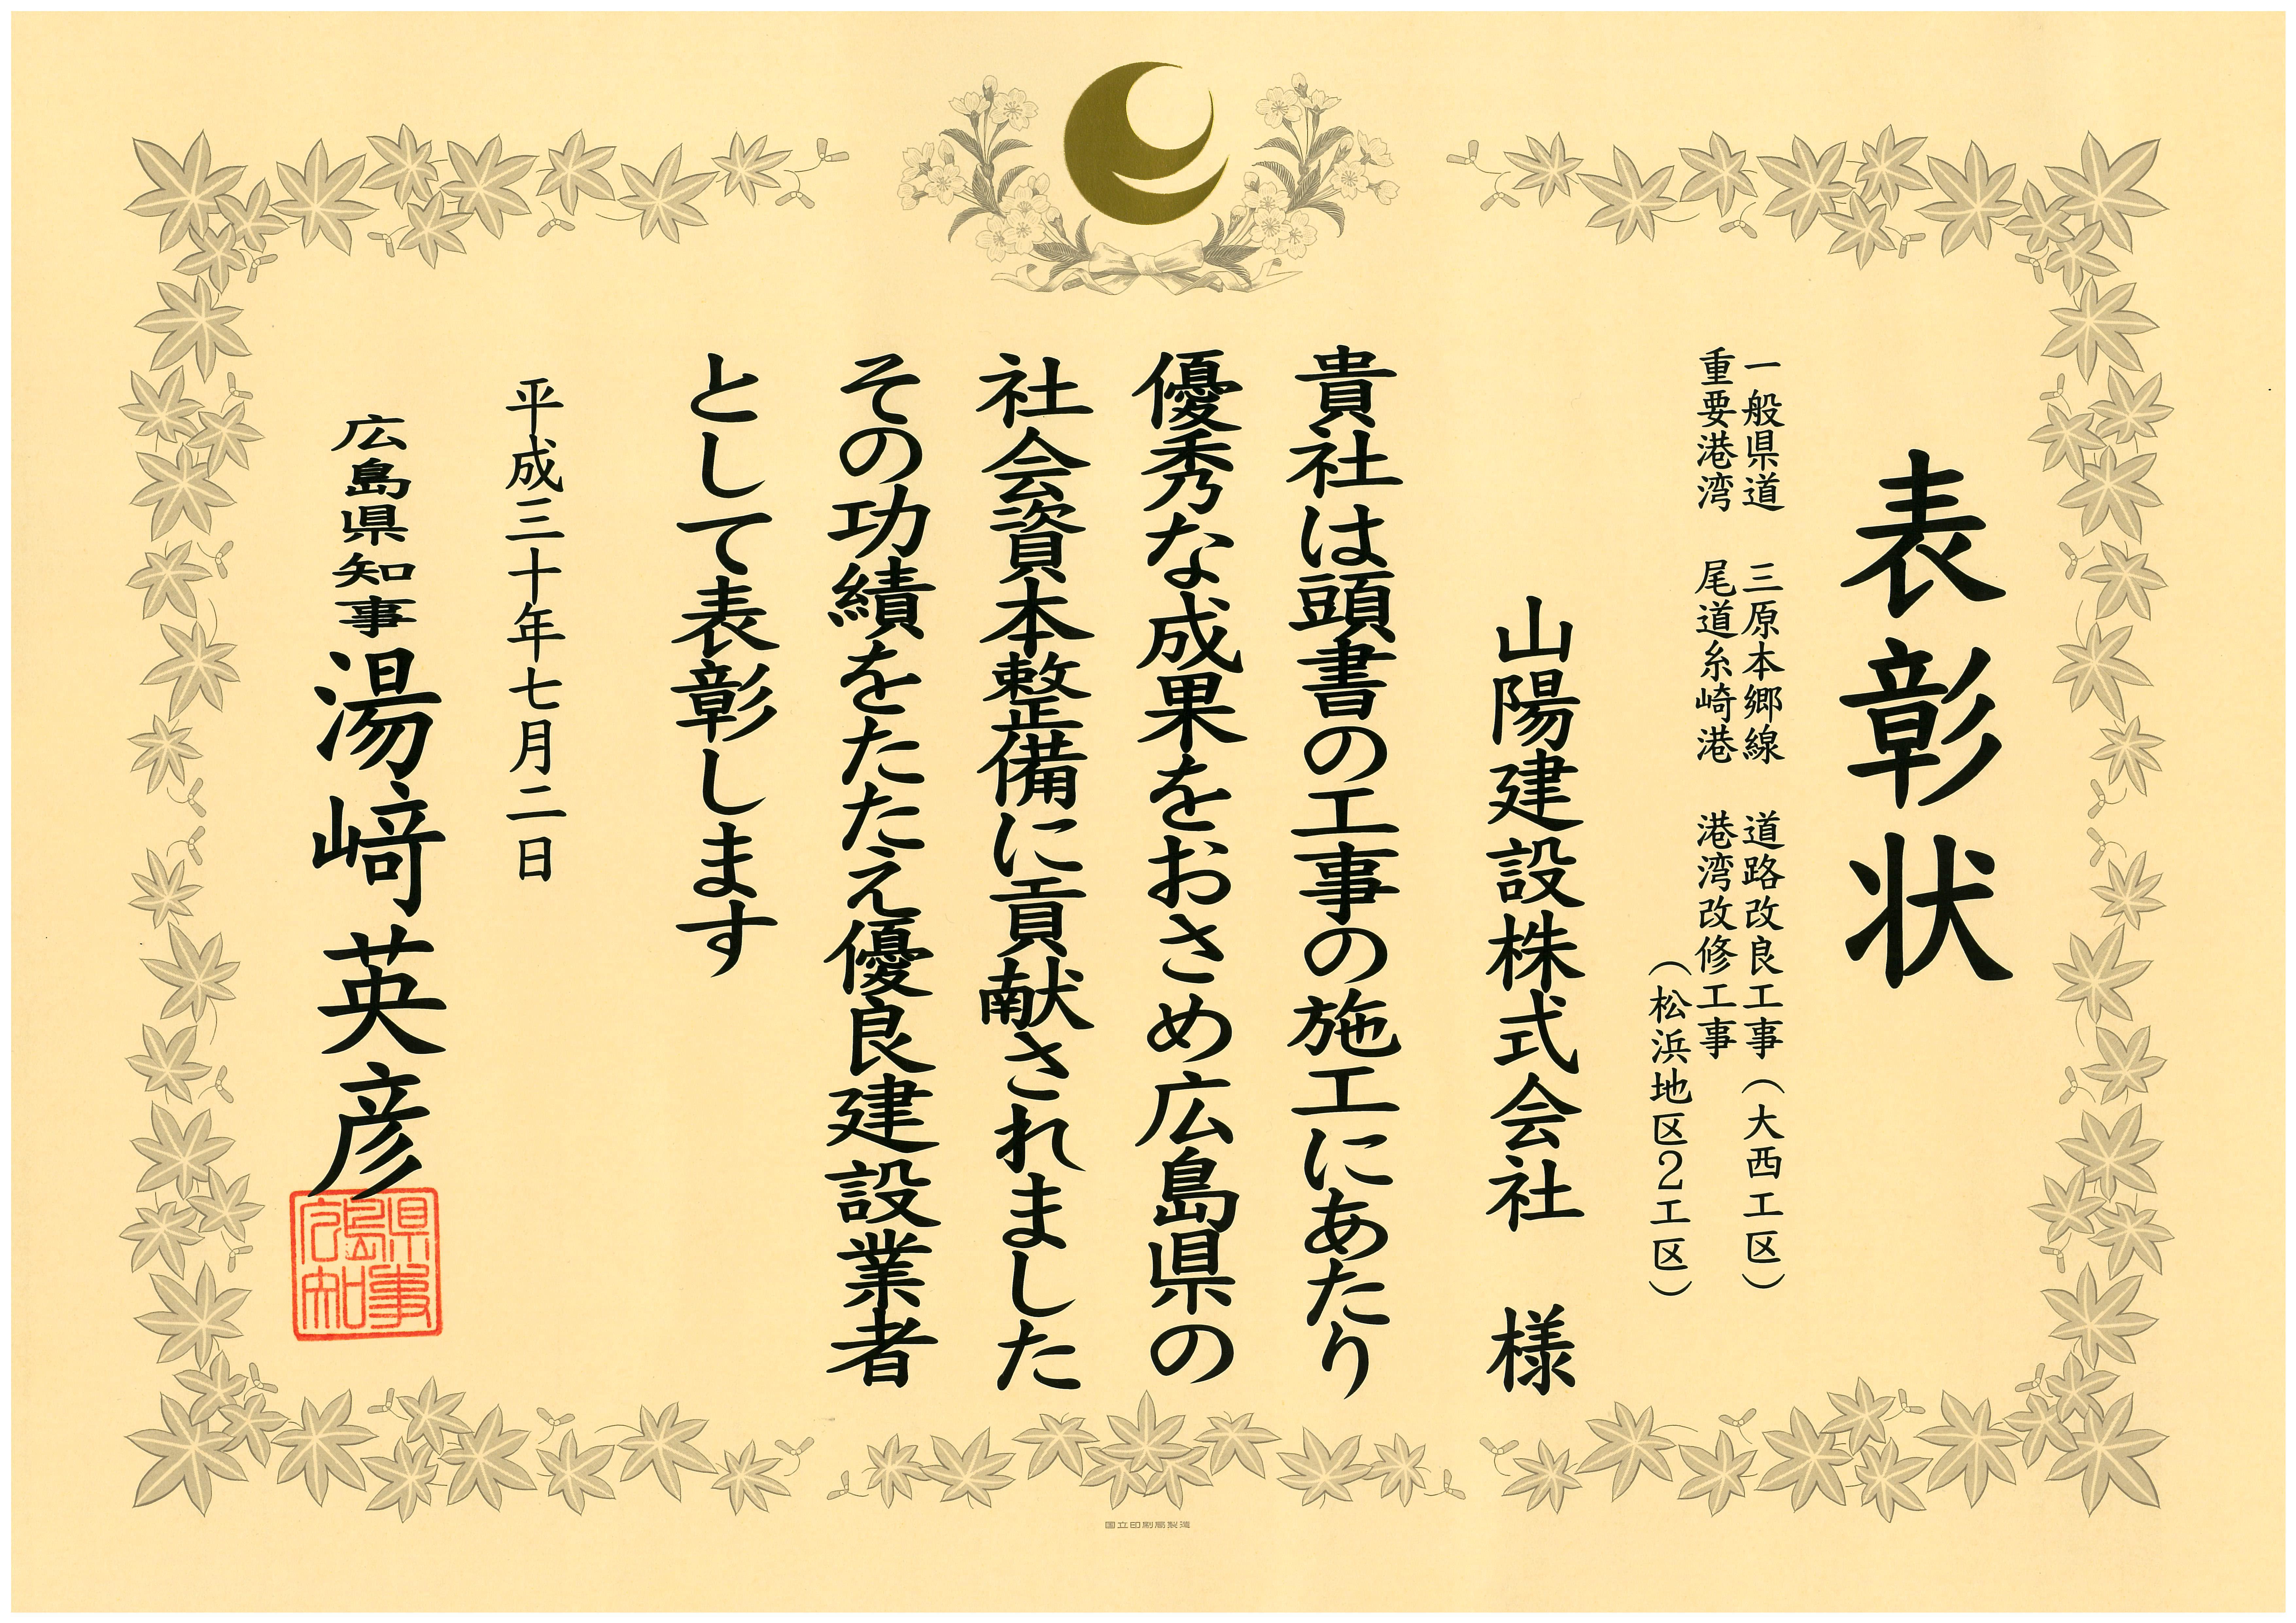 表彰状
一般県道　三原本郷線　道路改良工事（大西工区）
重要港湾　尾道糸崎港　港湾改修工事
（松浜地区２工区）
山陽建設株式会社　様
貴社は頭書の工事の施工にあたり
優秀な成果をおさめ広島県の
社会資本整備に貢献されました
その功績をたたえ優良建設業者
として表彰します
平成三十年七月二日
広島県知事湯﨑英彦
県事
島
広知
國立印刷局製造